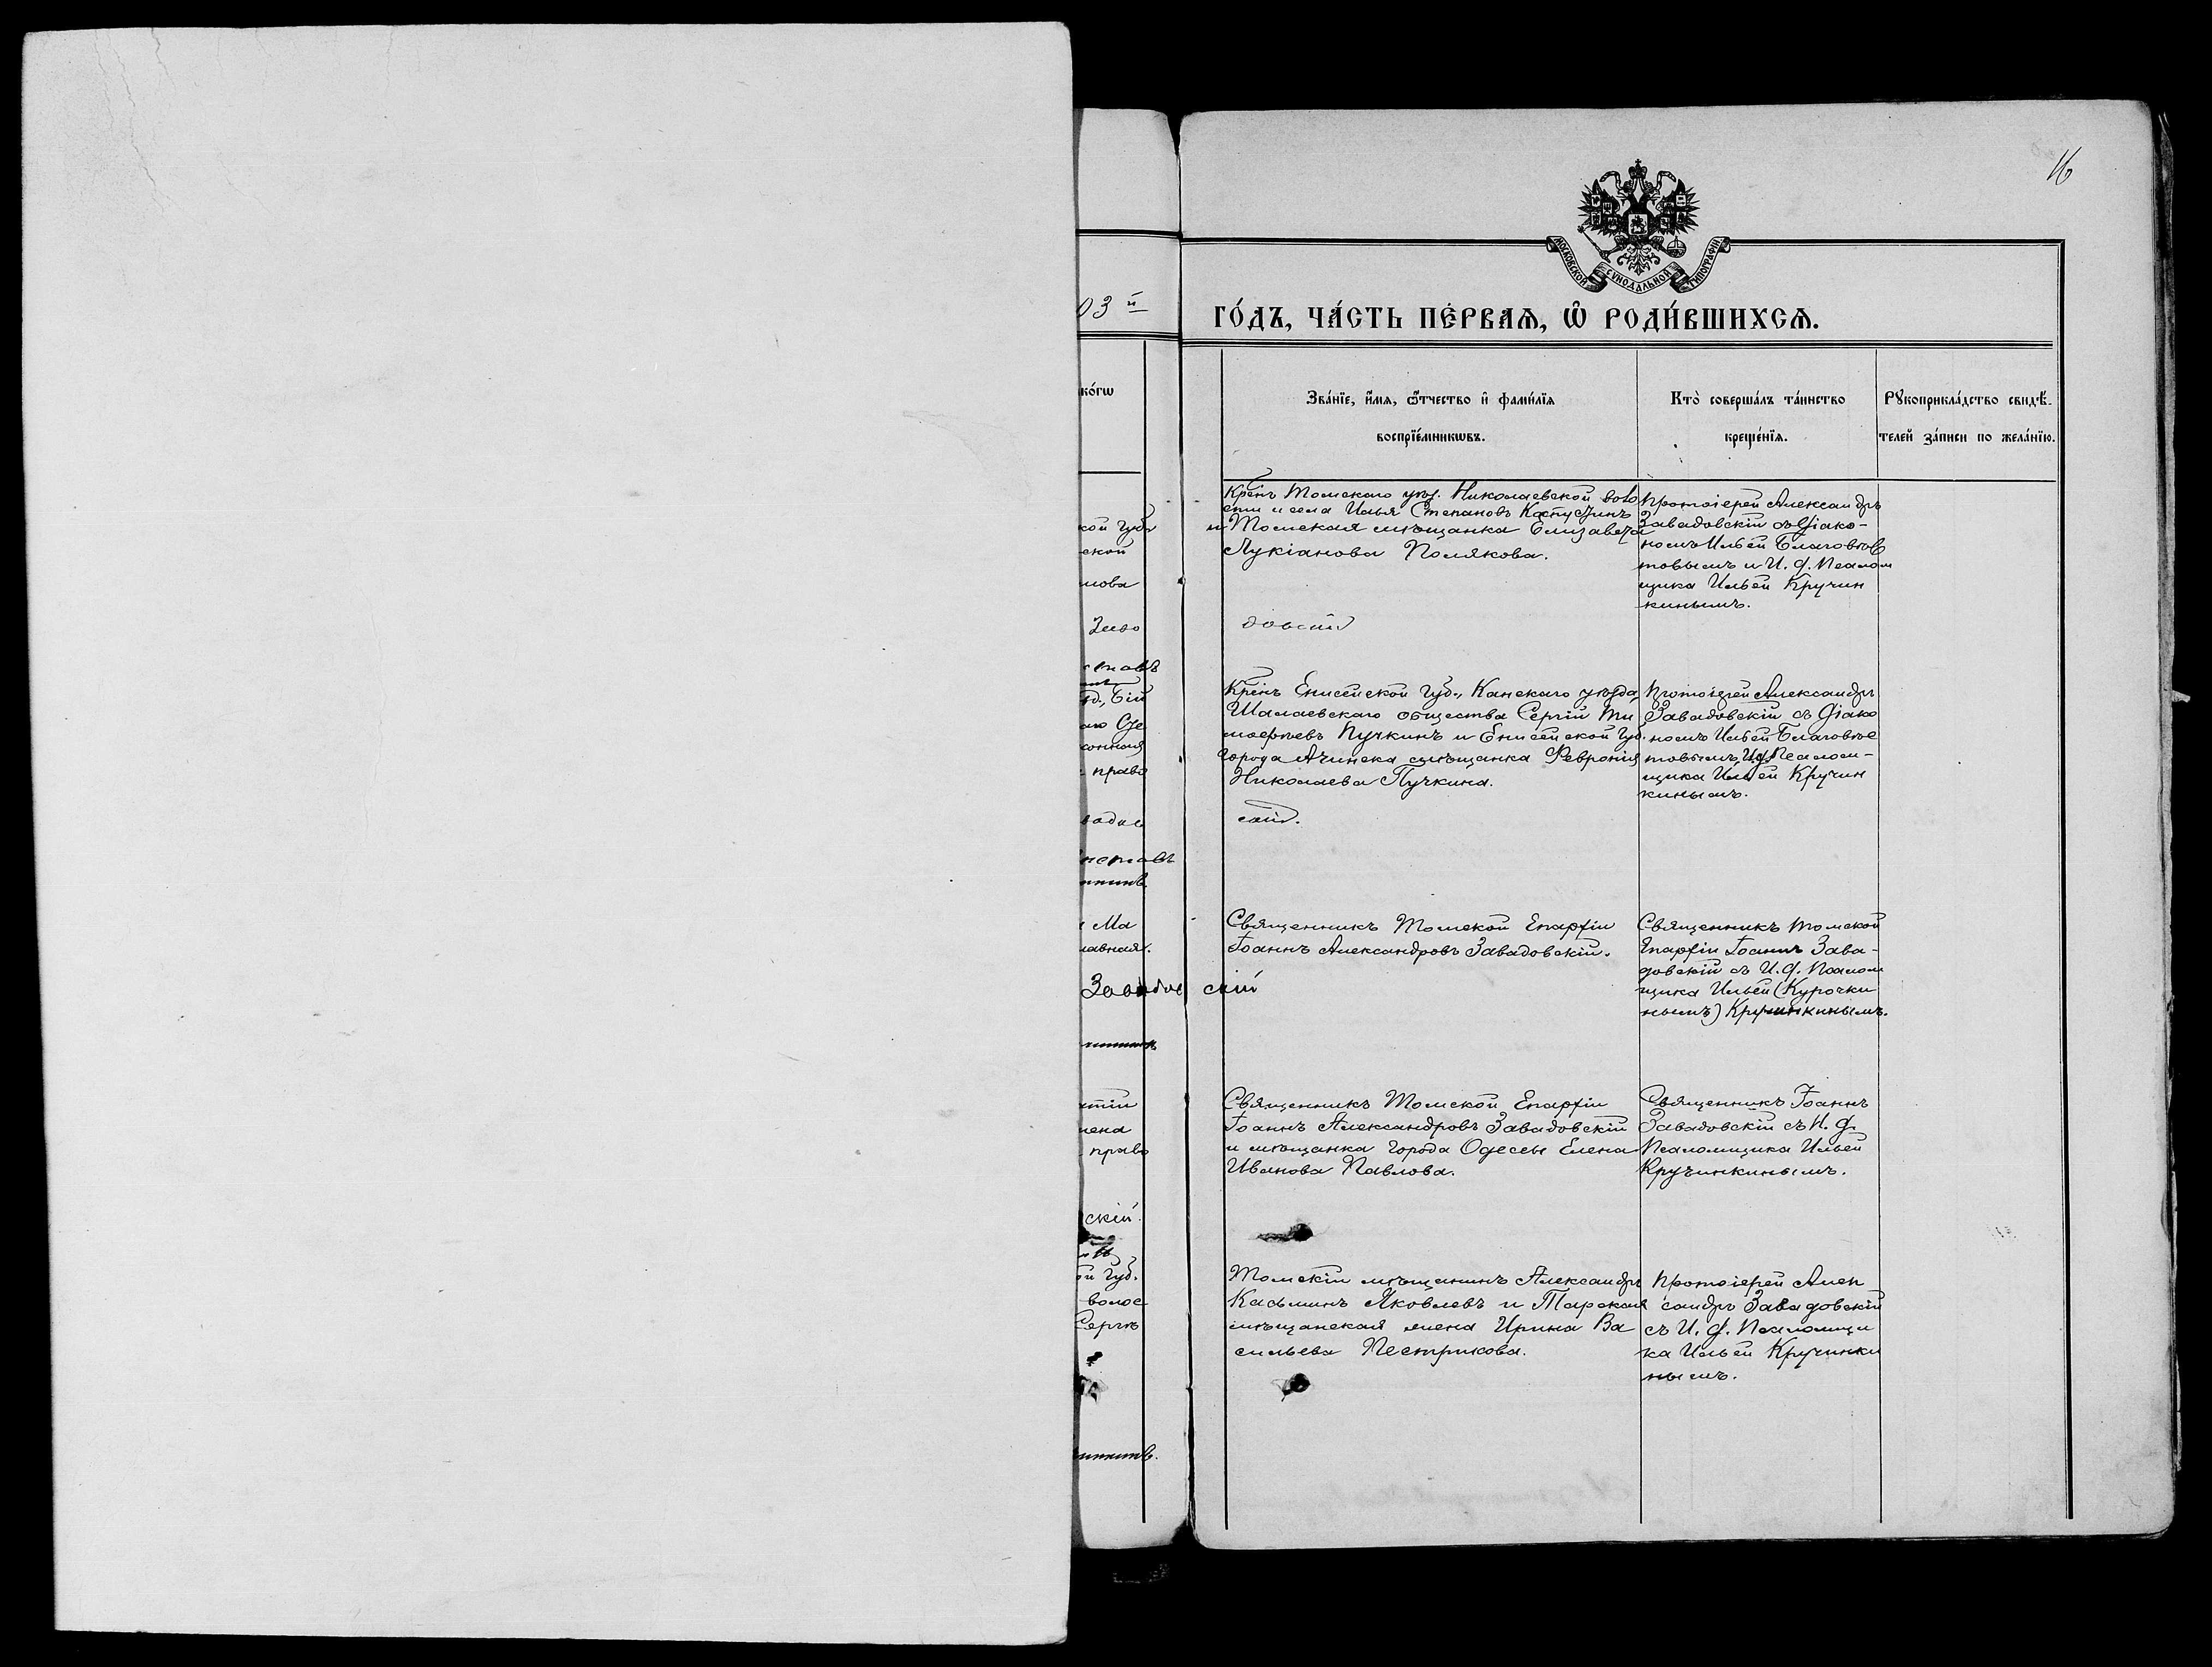 16
МОСКОВСКОЙ СУНОДАЛЬНОЙ ТИПОГРАФІИ
03 й
го́дъ, ча́сть пе́рваѧ, ѡ҆ роди́вшихсѧ.
ко́гѡ
Зва́нїе, и҆́мѧ, ѻ҆́тчество и҆ фами́лїѧ
воспрїе́мникѡвъ.
Кто̀ соверша́лъ та́инство
креще́нїѧ.
Рꙋкоприкла́дство свидѣ́-
телей за́писи по жела́нїю.
кой Губ
ской
мова
Заво
Крнъ Томскаго уѣз. Николаевской воло
сти и села Илья Степановъ Капустинъ
и Томская мѣщанка Елизавета
Лукіанова Полякова.
довскій
Протоіерей Александръ
Завадовскій съ Діако-
номъ Ильей Благовѣс
товымъ и И. д. Псалом
щика Ильей Кручин
кинымъ.
Бій
конная
право
вадов
Крнъ Енисейской Губ., Канскаго уѣзда
Шалаевскаго общества Сергій Ти
моѳеевъ Пучкинъ и Енисейской Губ.
города Ачинска мѣщанка Февронія
Николаева Пучкина.
скій.
Протоіерей Александръ
Завадовскій съ Діако
номъ Ильей Благовѣс
товымъ, И.д. Псалом-
щика Ильей Кручин
кинымъ.
Ма
лавная.
Завадов
Священникъ Томской Епархіи
Іоаннъ Александровъ Завадовскій.
скій
Священникъ Томской
Епархіи Іоаннъ Зава-
довскій съ И. д. Псалом
щика Ильей (Курочки
нымъ) Кручинкинымъ.
право
скій.
Священникъ Томской Епархіи
Іоаннъ Александровъ Завадовскій
и мѣщанка города Одессы Елена
Иванова Павлова.
Священникъ Іоаннъ
Завадовскій съ И. д.
Псаломщика Ильей
Кручинкинымъ.
Губ.
волос
Сергѣ
Томскій мѣщанинъ Александръ
Касьминъ Яковлевъ и Тарская
мѣщанская жена Ирина Ва
сильева Пестрикова.
Протоіерей Алек
сандръ Завадовскій
съ И. д. Псаломщи
ка Ильей Кручинки
нымъ.